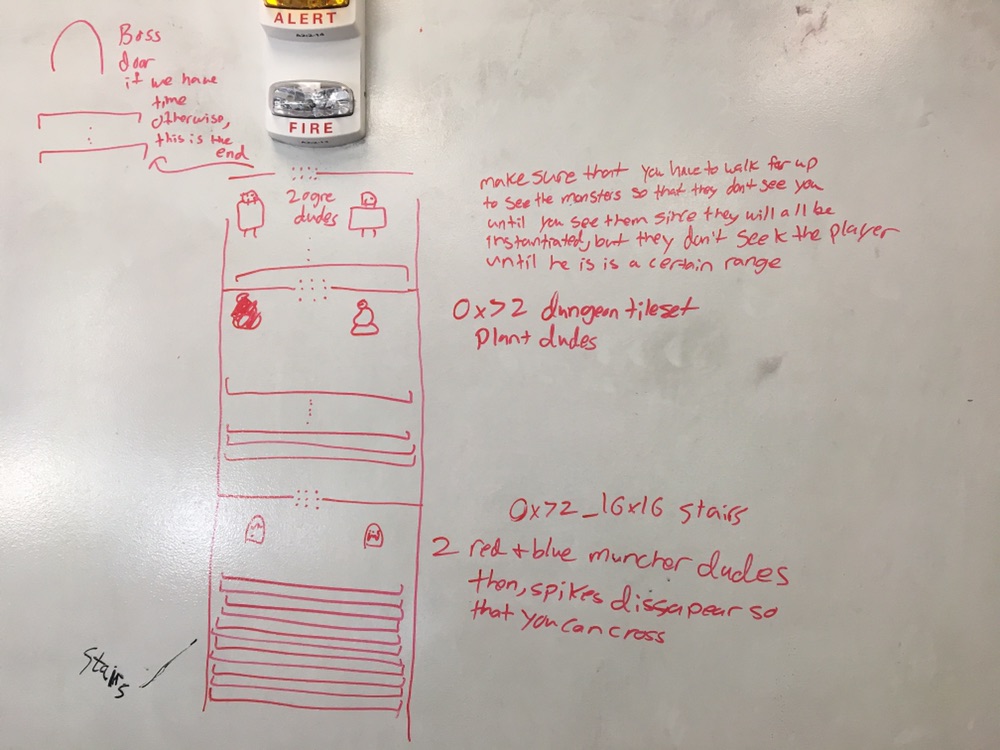 ALERT
FIRE
Boss
door
if we have
time
otherwise,
this is the
end
2 ogre
dudes
make sure that you have to walk far up
to see the monsters so that they don't see you
until you see them since they will all be
instantiated, but they don't seek the player
until he is is a certain range
0x72 dungeon tileset
Plant dudes
0x72_16x16 stairs
2 red + blue muncher dudes
then, spikes dissapear so
that you can cross
Stairs